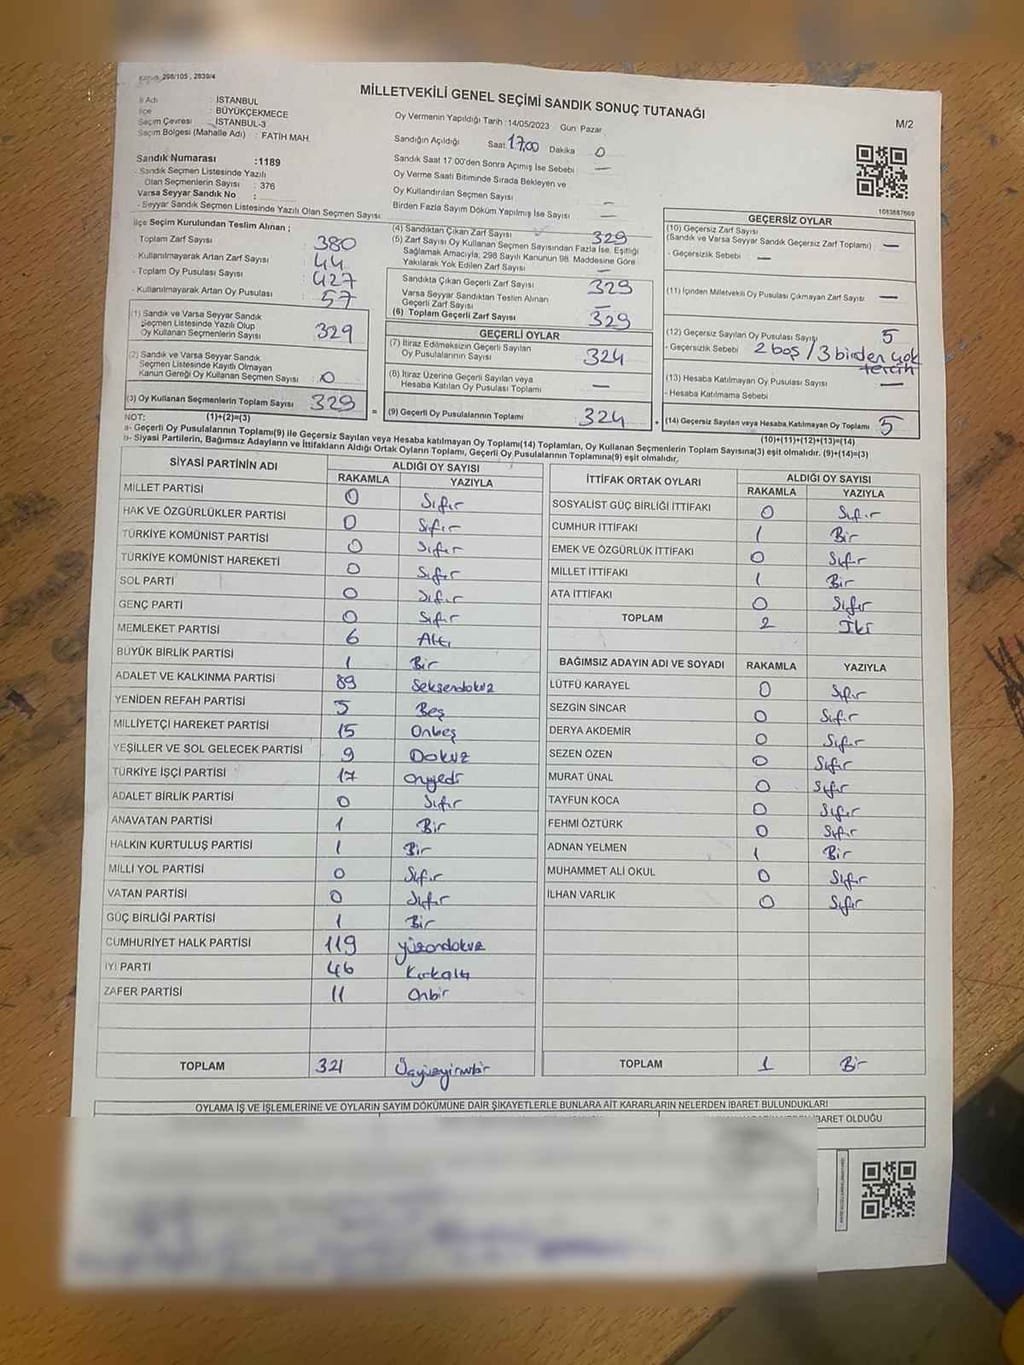 Kanun 298/105, 2839/4
MİLLETVEKİLİ GENEL SEÇİMİ SANDIK SONUÇ TUTANAĞI
M/2
İl Adı : İSTANBUL
İlçe : BÜYÜKÇEKMECE
Seçim Çevresi : İSTANBUL-3
Seçim Bölgesi (Mahalle Adı) : FATİH MAH.
Sandık Numarası :1189
- Sandık Seçmen Listesinde Yazılı
Olan Seçmenlerin Sayısı : 376
Varsa Seyyar Sandık No :
- Seyyar Sandık Seçmen Listesinde Yazılı Olan Seçmen Sayısı
Oy Vermenin Yapıldığı Tarih :14/05/2023 Gün: Pazar
Sandığın Açıldığı Saat 17,00 Dakika 0
Sandık Saat 17.00'den Sonra Açımış İse Sebebi —
Oy Verme Saati Bitiminde Sırada Bekleyen ve
Oy Kullandırılan Seçmen Sayısı —
Birden Fazla Sayım Döküm Yapılmış İse Sayısı —
1083687669
İlçe Seçim Kurulundan Teslim Alınan ;
Toplam Zarf Sayısı 380
- Kullanılmayarak Artan Zarf Sayısı 44
- Toplam Oy Pusulası Sayısı 427
- Kullanılmayarak Artan Oy Pusulası 57
(1) Sandık ve Varsa Seyyar Sandık
Seçmen Listesinde Yazılı Olup
Oy Kullanan Seçmenlerin Sayısı 329
(2) Sandık ve Varsa Seyyar Sandık
Seçmen Listesinde Kayıtlı Olmayan
Kanun Gereği Oy Kullanan Seçmen Sayısı 0
(3) Oy Kullanan Seçmenlerin Toplam Sayısı 329
(4) Sandıktan Çıkan Zarf Sayısı 329
(5) Zarf Sayısı Oy Kullanan Seçmen Sayısından Fazla İse, Eşitliği
Sağlamak Amacıyla, 298 Sayılı Kanunun 98. Maddesine Göre
Yakılarak Yok Edilen Zarf Sayısı —
Sandıkta Çıkan Geçerli Zarf Sayısı 329
Varsa Seyyar Sandıktan Teslim Alınan
Geçerli Zarf Sayısı —
(6) Toplam Geçerli Zarf Sayısı 329
GEÇERLİ OYLAR
(7) İtiraz Edilmeksizin Geçerli Sayılan
Oy Pusulalarının Sayısı 324
(8) İtiraz Üzerine Geçerli Sayılan veya
Hesaba Katılan Oy Pusulası Toplamı —
= (9) Geçerli Oy Pusulalarının Toplamı 324
GEÇERSİZ OYLAR
(10) Geçersiz Zarf Sayısı
(Sandık ve Varsa Seyyar Sandık Geçersiz Zarf Toplamı) —
- Geçersizlik Sebebi —
(11) İçinden Milletvekili Oy Pusulası Çıkmayan Zarf Sayısı —
(12) Geçersiz Sayılan Oy Pusulası Sayısı 5
- Geçersizlik Sebebi 2 boş / 3 birden çok
tercih
(13) Hesaba Katılmayan Oy Pusulası Sayısı —
- Hesaba Katılmama Sebebi
(14) Geçersiz Sayılan veya Hesaba Katılmayan Oy Toplamı 5
NOT: (1)+(2)=(3)
(10)+(11)+(12)+(13)=(14)
a- Geçerli Oy Pusulalarının Toplamı(9) ile Geçersiz Sayılan veya Hesaba katılmayan Oy Toplamı(14) Toplamları, Oy Kullanan Seçmenlerin Toplam Sayısına(3) eşit olmalıdır. (9)+(14)=(3)
b- Siyasi Partilerin, Bağımsız Adayların ve İttifakların Aldığı Ortak Oyların Toplamı, Geçerli Oy Pusulalarının Toplamına(9) eşit olmalıdır.
SİYASİ PARTİNİN ADI ALDIĞI OY SAYISI
RAKAMLA YAZIYLA
MİLLET PARTİSİ 0 Sıfır
HAK VE ÖZGÜRLÜKLER PARTİSİ 0 Sıfır
TÜRKİYE KOMÜNİST PARTİSİ 0 Sıfır
TÜRKİYE KOMÜNİST HAREKETİ 0 Sıfır
SOL PARTİ 0 Sıfır
GENÇ PARTİ 0 Sıfır
MEMLEKET PARTİSİ 6 Altı
BÜYÜK BİRLİK PARTİSİ 1 Bir
ADALET VE KALKINMA PARTİSİ 89 Seksendokuz
YENİDEN REFAH PARTİSİ 5 Beş
MİLLİYETÇİ HAREKET PARTİSİ 15 Onbeş
YEŞİLLER VE SOL GELECEK PARTİSİ 9 Dokuz
TÜRKİYE İŞÇİ PARTİSİ 17 onyedi
ADALET BİRLİK PARTİSİ 0 Sıfır
ANAVATAN PARTİSİ 1 Bir
HALKIN KURTULUŞ PARTİSİ 1 Bir
MİLLİ YOL PARTİSİ 0 Sıfır
VATAN PARTİSİ 0 Sıfır
GÜÇ BİRLİĞİ PARTİSİ 1 Bir
CUMHURİYET HALK PARTİSİ 119 yüzondokuz
İYİ PARTİ 46 Kırkaltı
ZAFER PARTİSİ 11 Onbir
TOPLAM 321 Üçyüzyirmibir
İTTİFAK ORTAK OYLARI ALDIĞI OY SAYISI
RAKAMLA YAZIYLA
SOSYALİST GÜÇ BİRLİĞİ İTTİFAKI 0 Sıfır
CUMHUR İTTİFAKI 1 Bir
EMEK VE ÖZGÜRLÜK İTTİFAKI 0 Sıfır
MİLLET İTTİFAKI 1 Bir
ATA İTTİFAKI 0 Sıfır
TOPLAM 2 İki
BAĞIMSIZ ADAYIN ADI VE SOYADI RAKAMLA YAZIYLA
LÜTFÜ KARAYEL 0 Sıfır
SEZGİN SİNCAR 0 Sıfır
DERYA AKDEMİR 0 Sıfır
SEZEN ÖZEN 0 Sıfır
MURAT ÜNAL 0 Sıfır
TAYFUN KOCA 0 Sıfır
FEHMİ ÖZTÜRK 0 Sıfır
ADNAN YELMEN 1 Bir
MUHAMMET ALİ OKUL 0 Sıfır
İLHAN VARLIK 0 Sıfır
TOPLAM 1 Bir
OYLAMA İŞ VE İŞLEMLERİNE VE OYLARIN SAYIM DÖKÜMÜNE DAİR ŞİKAYETLERLE BUNLARA AİT KARARLARIN NELERDEN İBARET BULUNDUKLARI
İBARET OLDUĞU